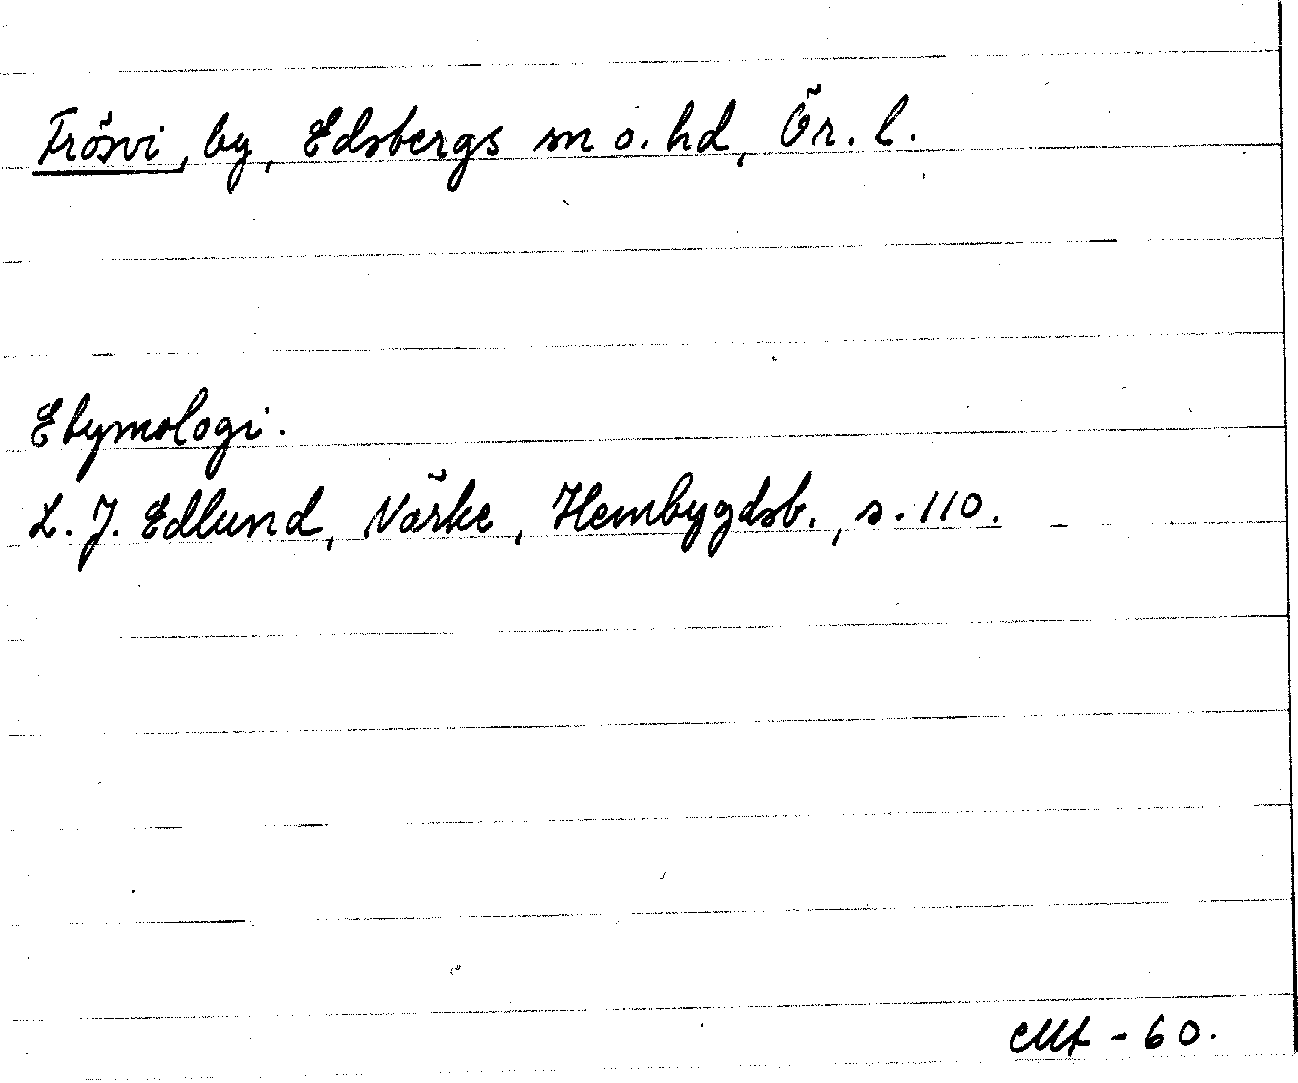 Frösvi, by, Edsbergs sn o. hd, Ör. l.
Etymologi.
L. J. Edlund, Närke, Hembygdsb., s. 110.
-60.